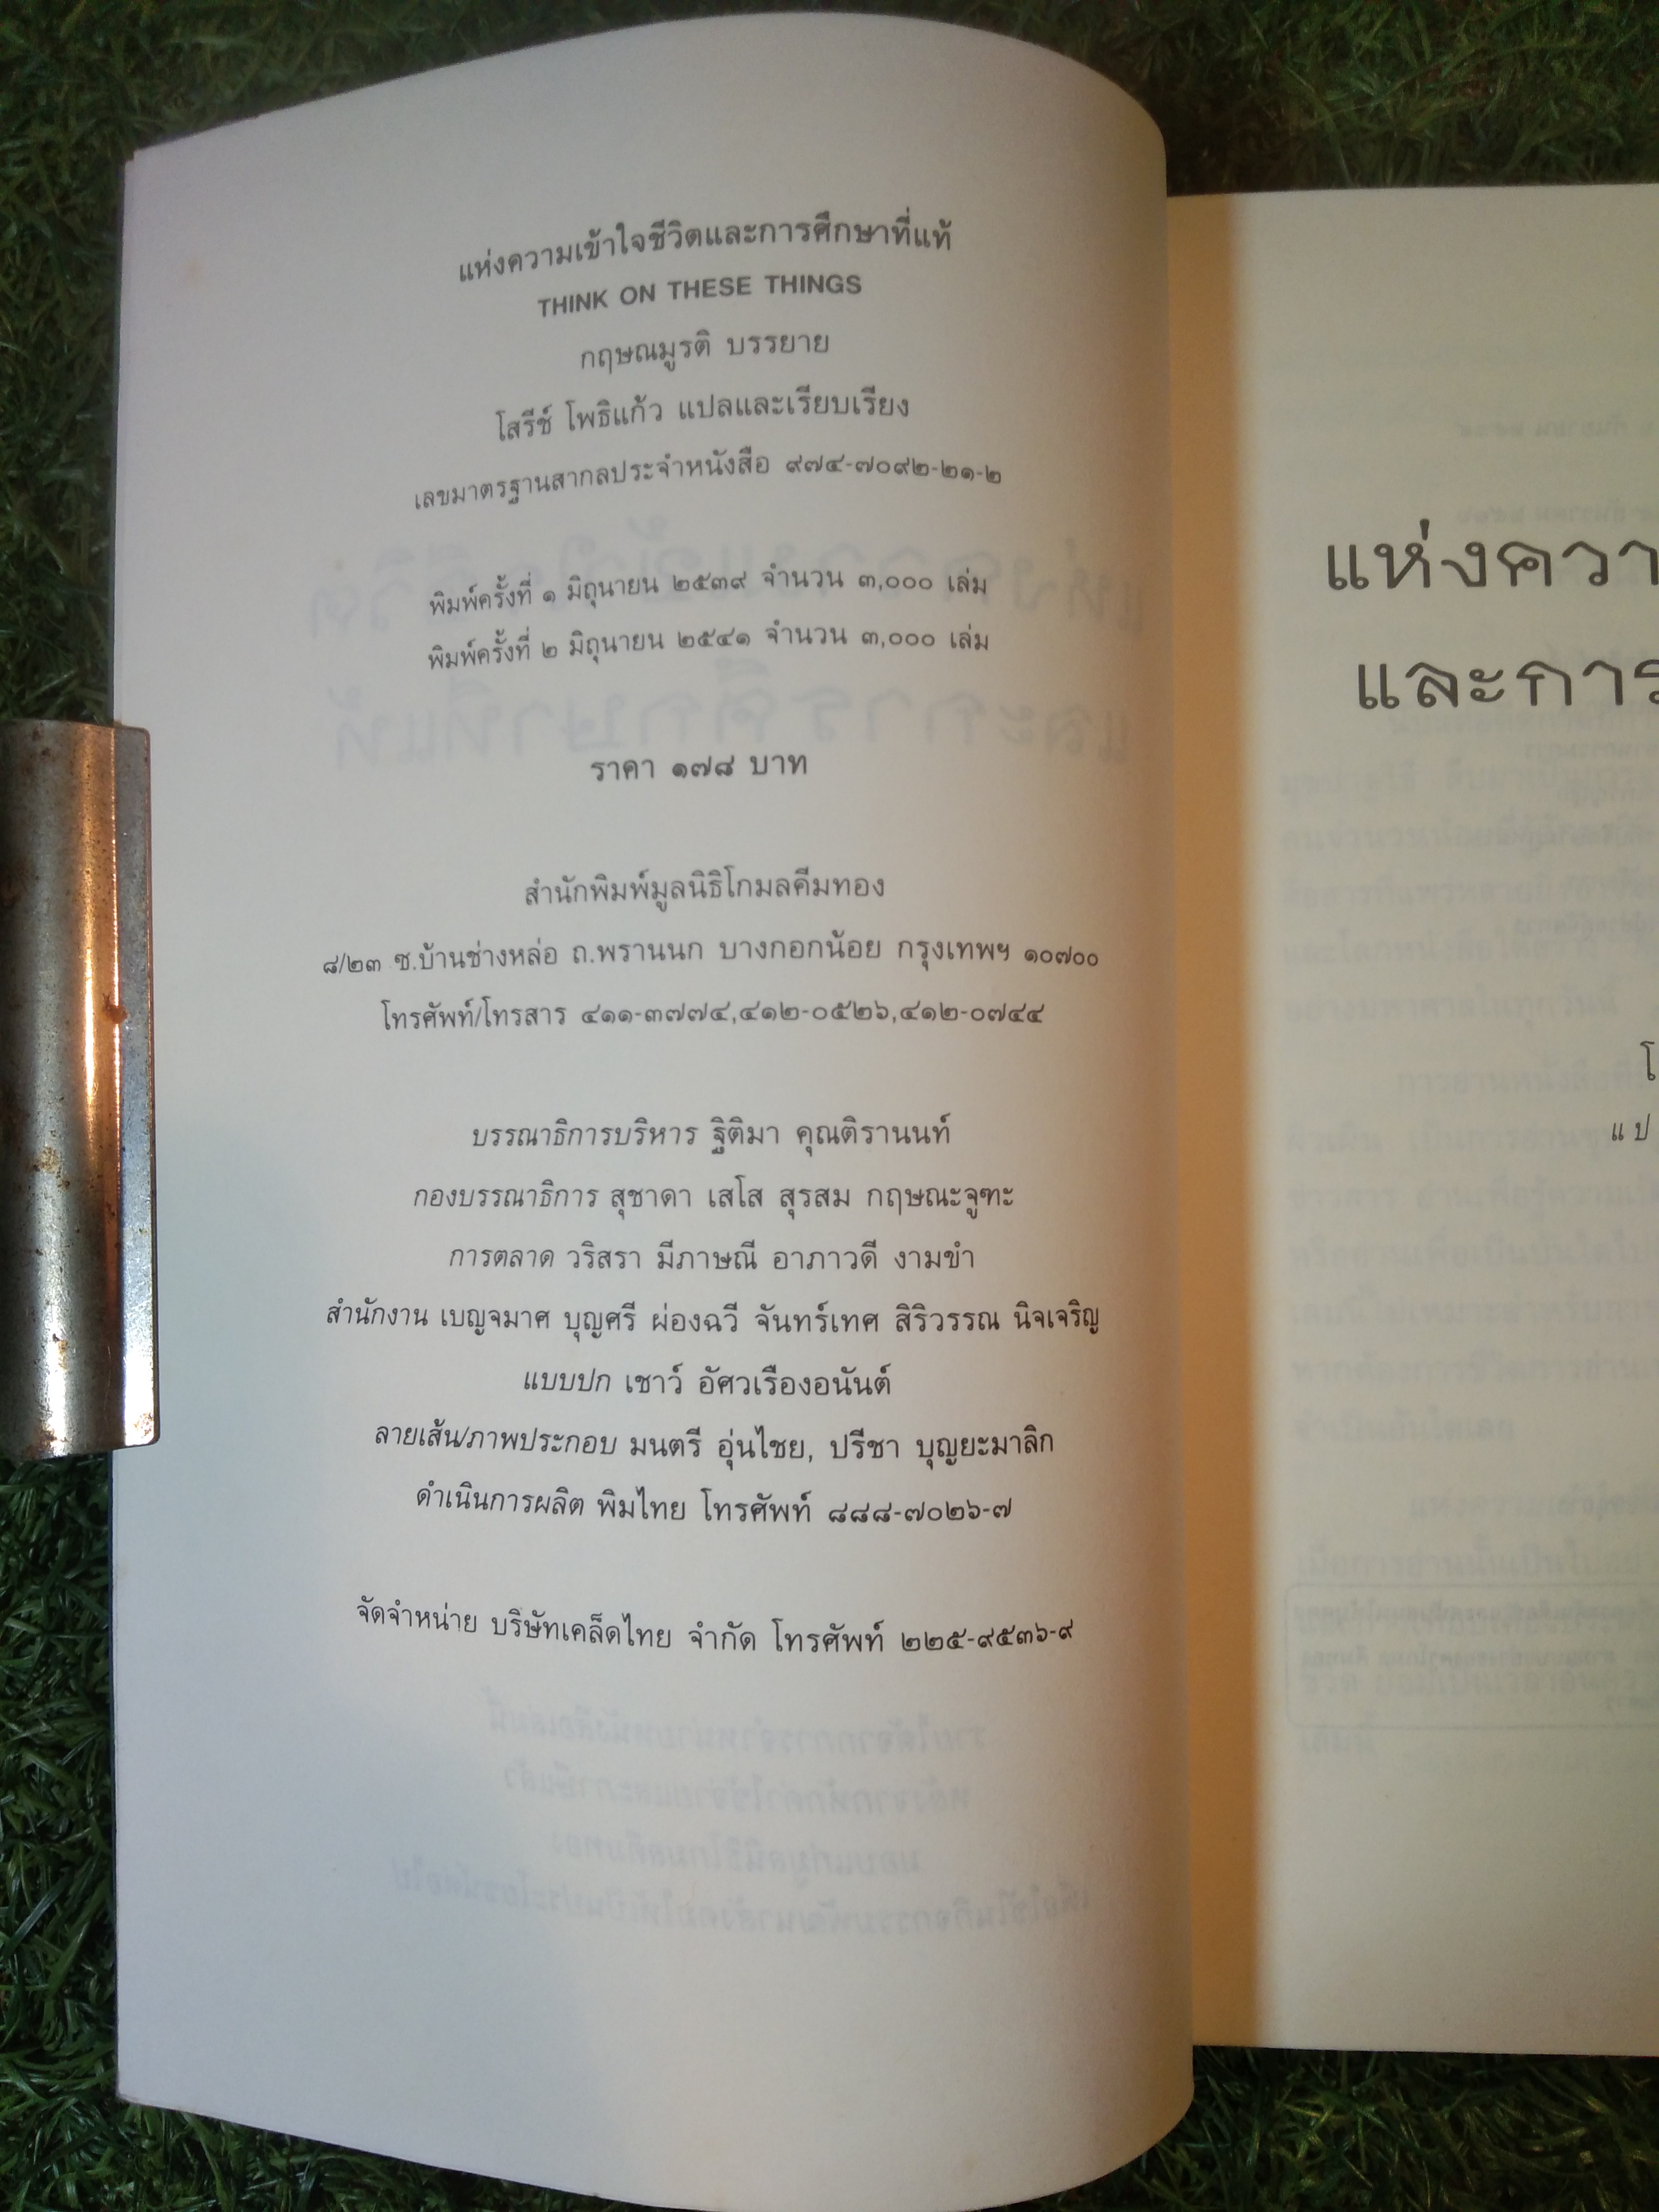 แห่งความเข้าใจชีวิตและการศึกษาที่แท้
THINK ON THESE THINGS
กฤษณมูรติ บรรยาย
โสรีช์ โพธิแก้ว แปลและเรียบเรียง
เลขมาตรฐานสากลประจำหนังสือ ๙๗๔-๗๐๙๒-๒๑-๒
พิมพ์ครั้งที่ ๑ มิถุนายน ๒๕๓๙ จำนวน ๓,๐๐๐ เล่ม
พิมพ์ครั้งที่ ๒ มิถุนายน ๒๕๔๑ จำนวน ๓,๐๐๐ เล่ม
ราคา ๑๗๘ บาท
สำนักพิมพ์มูลนิธิโกมลคีมทอง
๘/๒๓ ซ.บ้านช่างหล่อ ถ.พรานนก บางกอกน้อย กรุงเทพฯ ๑๐๗๐๐
โทรศัพท์/โทรสาร ๔๑๑-๓๗๗๔,๔๑๒-๐๕๒๖,๔๑๒-๐๗๔๔
บรรณาธิการบริหาร ฐิติมา คุณติรานนท์
กองบรรณาธิการ สุชาดา เสโส สุรสม กฤษณะจูฑะ
การตลาด วริสรา มีภาษณี อาภาวดี งามขำ
สำนักงาน เบญจมาศ บุญศรี ผ่องฉวี จันทร์เทศ สิริวรรณ นิจเจริญ
แบบปก เชาว์ อัศวเรืองอนันต์
ลายเส้น/ภาพประกอบ มนตรี อุ่นไชย, ปรีชา บุญยะมาลิก
ดำเนินการผลิต พิมไทย โทรศัพท์ ๘๘๘-๗๐๒๖-๗
จัดจำหน่าย บริษัทเคล็ดไทย จำกัด โทรศัพท์ ๒๒๕-๙๕๓๖-๙
แห่งควา
และการ
โ
แป